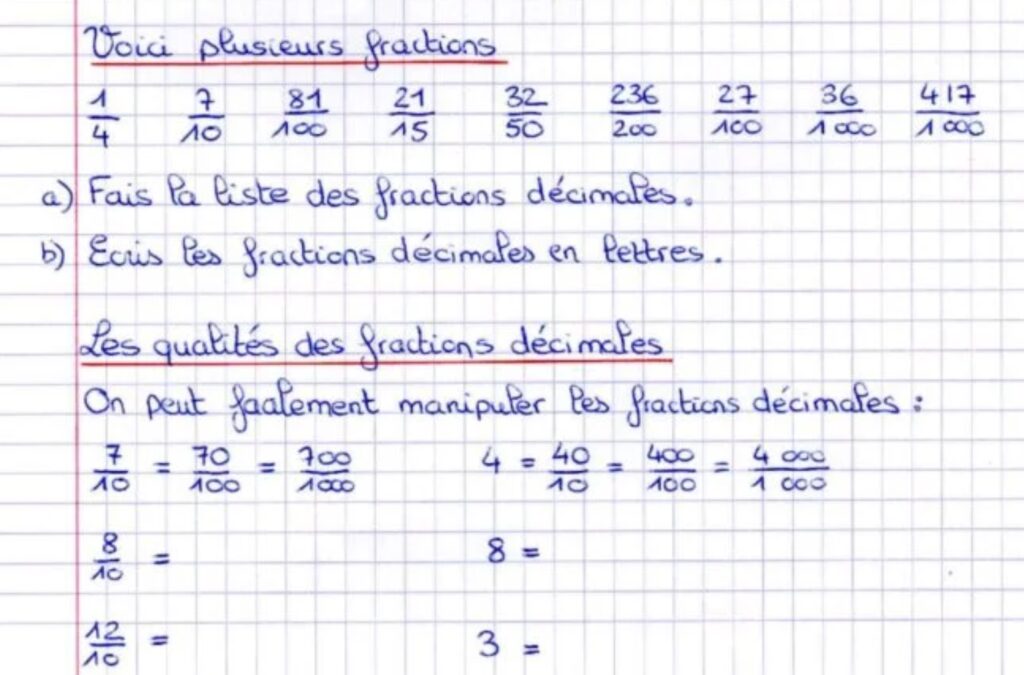 Voici plusieurs fractions
1/4 7/10 81/100 21/15 32/50 236/200 27/100 36/1 000 417/1 000
a) Fais la liste des fractions décimales.
b) Ecris les fractions décimales en lettres.
Les qualités des fractions décimales
On peut facilement manipuler les fractions décimales :
7/10 = 70/100 = 700/1000 4 = 40/10 = 400/100 = 4 000/1 000
8/10 = 8 =
12/10 = 3 =